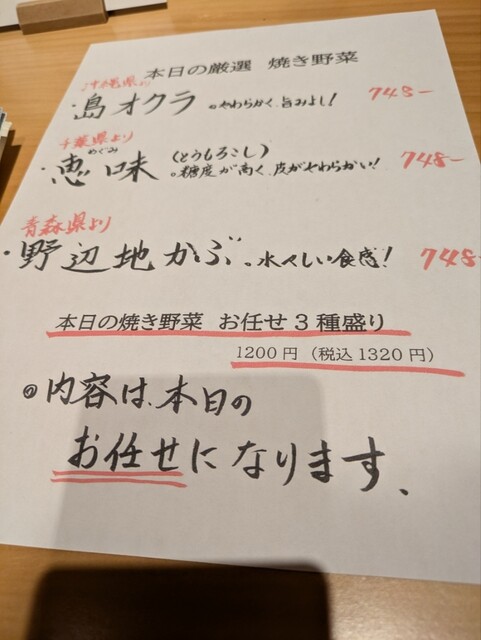 本日の厳選 焼き野菜
沖縄県より
・島オクラ 。やわらかく、旨みよし! 748-
千葉県より
めぐみ
・恵味 (とうもろこし) 。糖度が高く、皮がやわらかい! 748-
青森県より
・野辺地かぶ 。水々しい食感! 748-
本日の焼き野菜 お任せ3種盛り
1200円(税込1320円)
◎内容は、本日の
お任せになります、